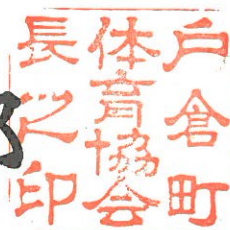 戸倉町
体育協会
長之印